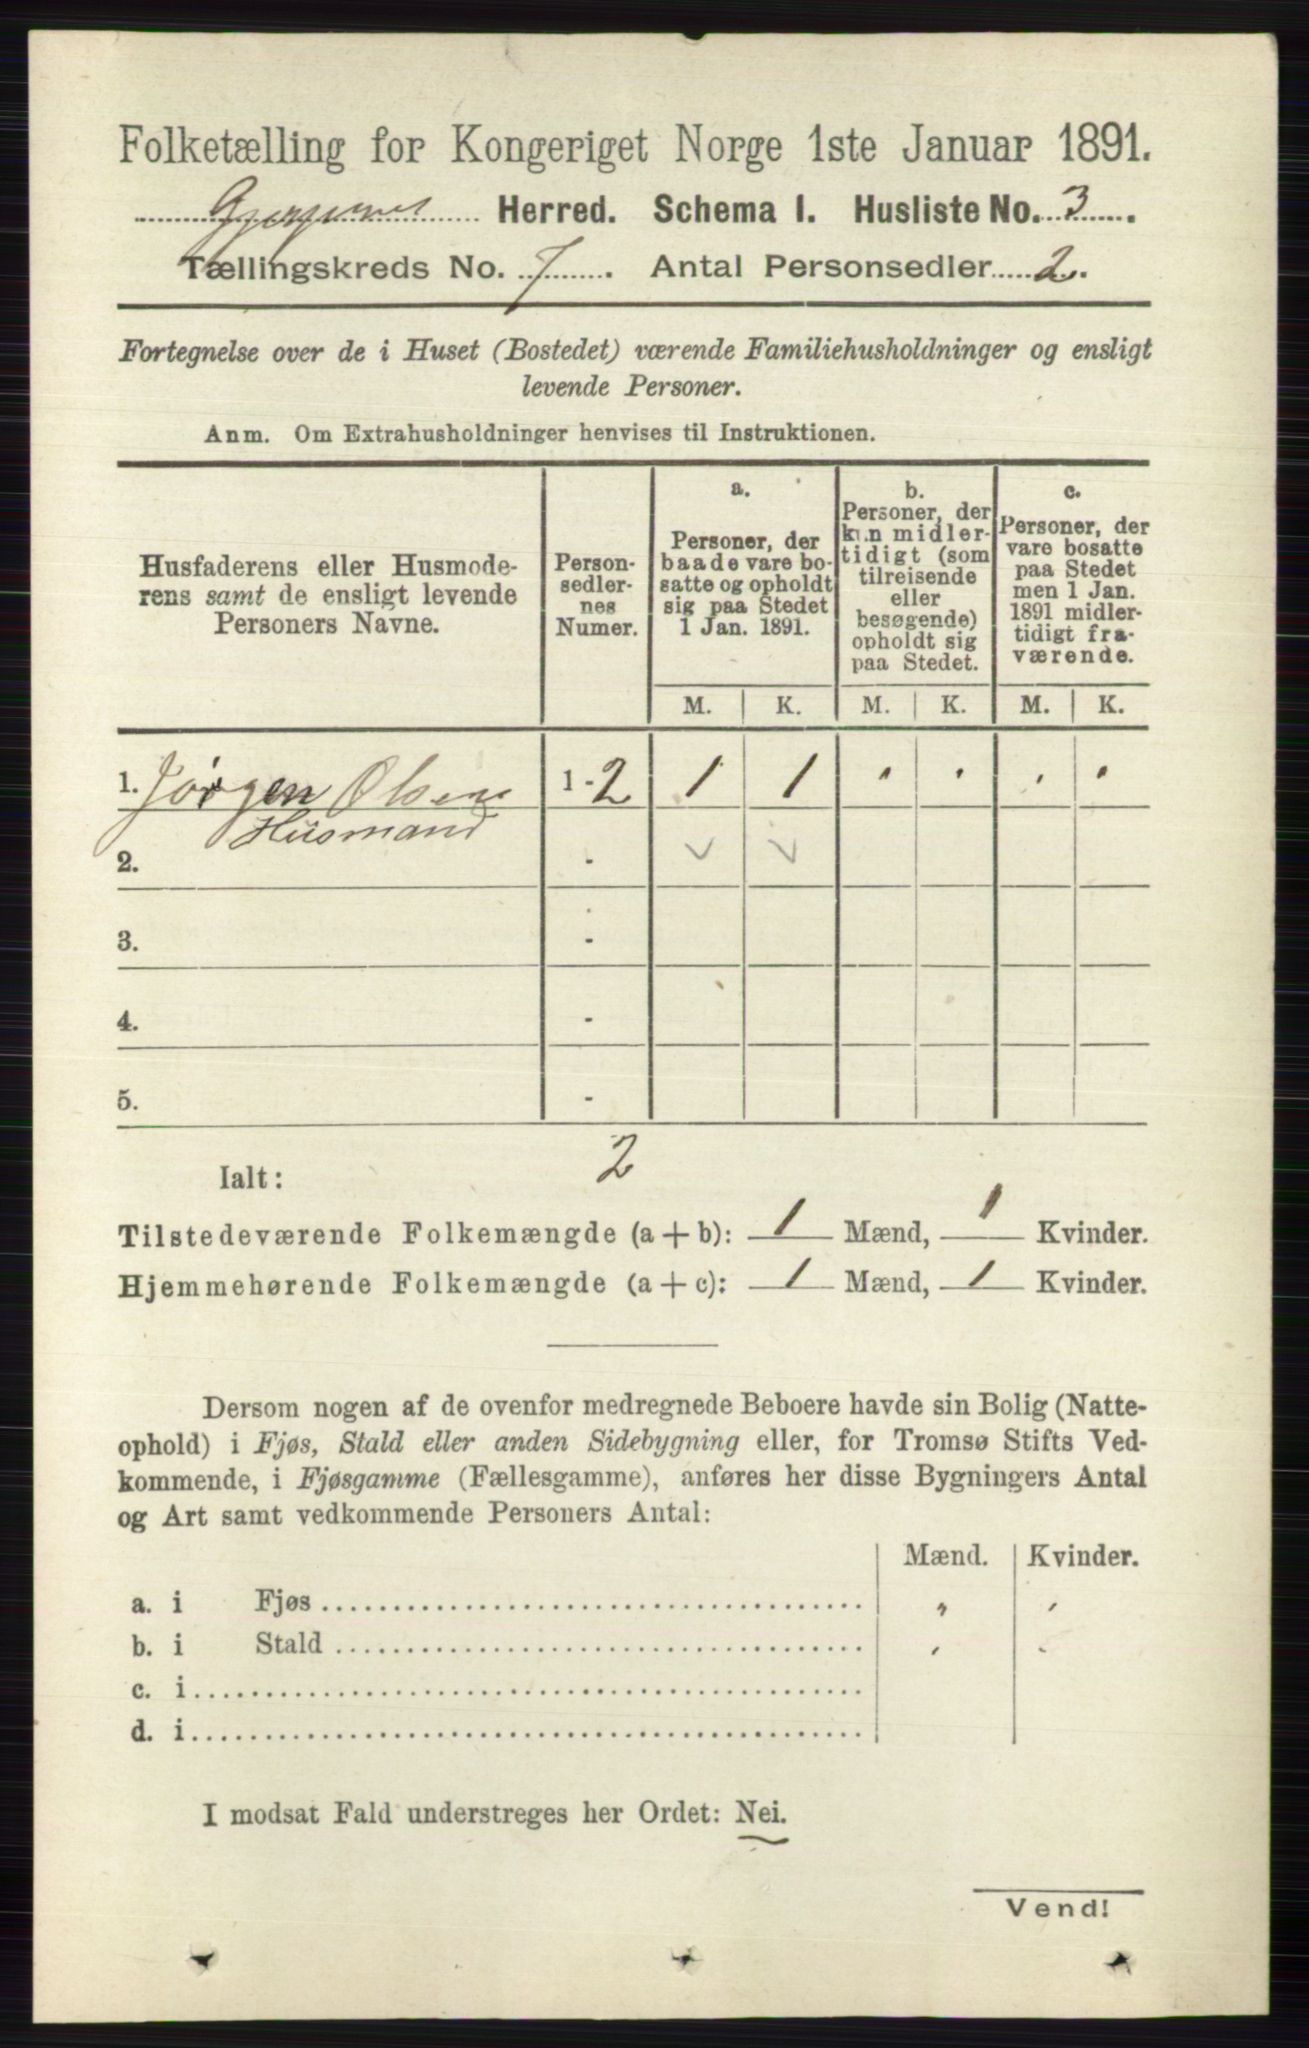 Folketælling for Kongeriget Norge 1ste Januar 1891.
Gjerpens Herred. Schema I. Husliste No. 3.
Tællingskreds No. 7. Antal Personsedler 2.
Fortegnelse over de i Huset (Bostedet) værende Familiehusholdninger og ensligt
levende Personer.
Anm. Om Extrahusholdninger henvises til Instruktionen.
Husfaderens eller Husmode-
rens samt de ensligt levende
Personers Navne.
Person-
sedler-
nes
Numer.
a.
Personer, der
baade vare bo-
satte og opholdt
sig paa Stedet
1 Jan. 1891.
b.
Personer, der
kun midler-
tidigt (som
tilreisende
eller
besøgende)
opholdt sig
paa Stedet.
c.
Personer, der
vare bosatte
paa Stedet
men 1 Jan.
1891 midler-
tidigt fra-
værende.
M. K. M. K. M. K.
1. Jørgen Olsen 1-2 1 1 " " " "
Husmand
2. -
3. -
4. -
5. -
Ialt: 2
Tilstedeværende Folkemængde (a + b): 1 Mænd, 1 Kvinder.
Hjemmehørende Folkemængde (a + c): 1 Mænd, 1 Kvinder.
Dersom nogen af de ovenfor medregnede Beboere havde sin Bolig (Natte-
ophold) i Fjøs, Stald eller anden Sidebygning eller, for Tromsø Stifts Ved-
kommende, i Fjøsgamme (Fællesgamme), anføres her disse Bygningers Antal
og Art samt vedkommende Personers Antal:
Mænd. Kvinder.
a. i Fjøs " "
b. i Stald " "
c. i
d. i
I modsat Fald understreges her Ordet: Nei.
Vend!